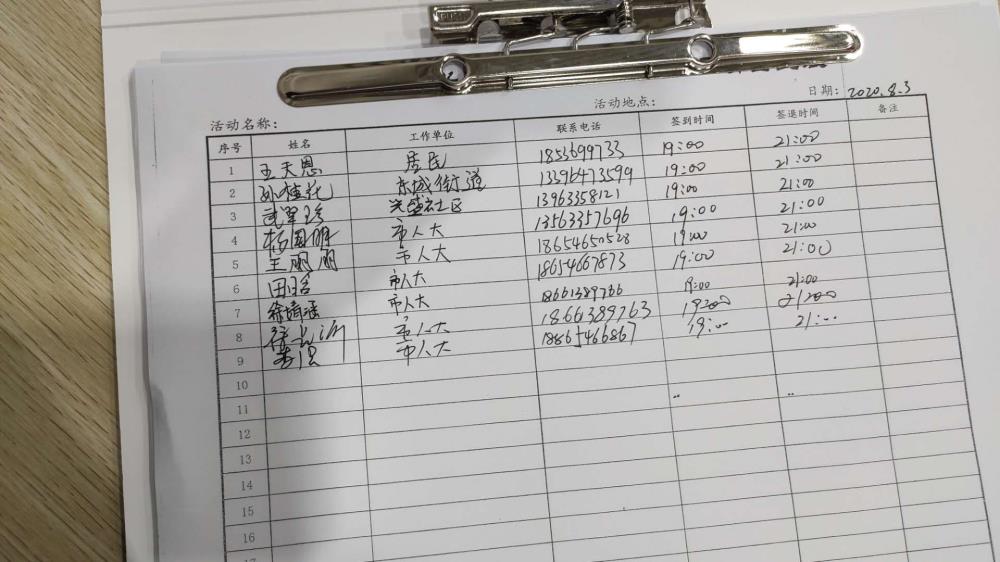 活动地点: 日期: 2020.8.3
活动名称:
序号 姓名 工作单位 联系电话 签到时间 签退时间 备注
1 王天恩 居民 1853699733 19:00 21:00
2 孙桂花 东城街道 13396473599 19:00 21:00
3 武军玲 兴盛社区 13963358121 19:00 21:00
4 杨国胜 市人大 13563357696 19:00 21:00
5 王丽丽 市人大 18654650528 19:00 21:00
6 田 市人大 18654667873 19:00 21:00
7 徐靖涵 市人大 18661389766 19:00 21:00
8 市人大 1866389763 19:00 21:00
9 市人大 18865466867 19:00 21:00
10
11
12
13
14
15
16
17